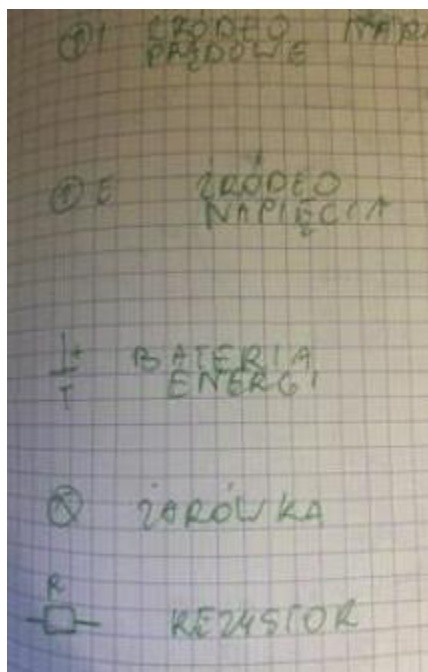 I ŹRÓDŁO
PRĄDOWE
E ŹRÓDŁO
NAPIĘCIA
BATERIA
ENERGI
ŻARÓWKA
R
REZYSTOR